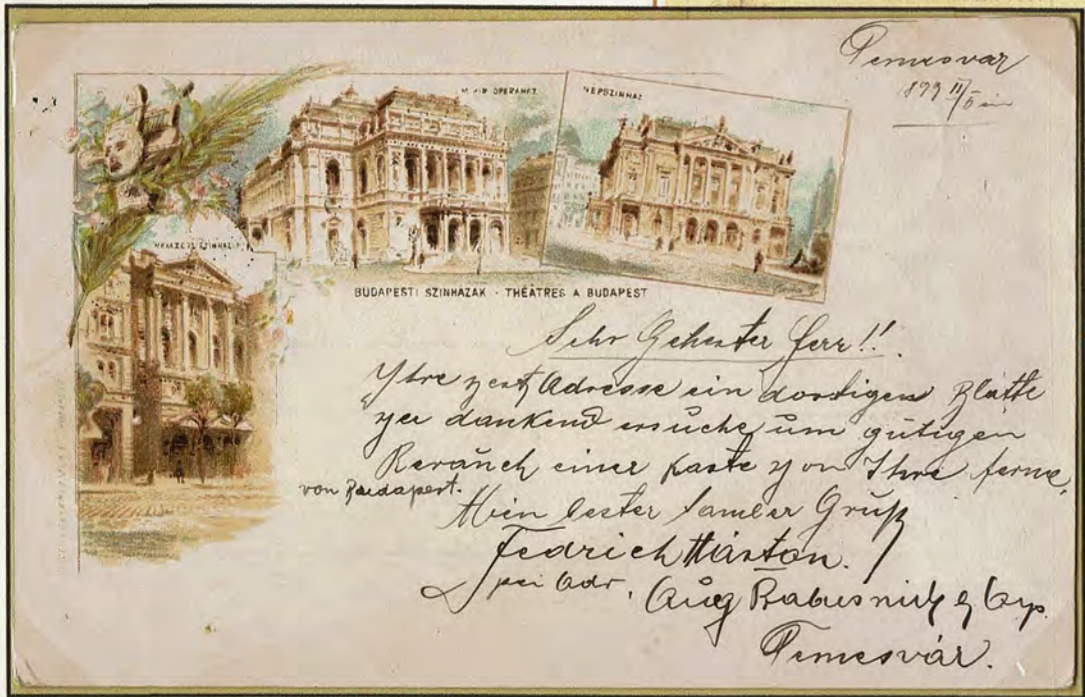 Temesvár
899 II/5 én
M. KIR. OPERAHÁZ
NÉPSZINHÁZ
NEMZETI SZINHÁZ
BUDAPESTI SZINHÁZAK - THÉÂTRES A BUDAPEST
Sehr Geherter Herr!!
Adresse ein dortigen Blatte
dankend ersuche um gütigen
einer Karte von Ihre ferne,
von Budapest.
Mein bester Gruß
Fedrich Márton.
per Adr. Aug
Temesvár.